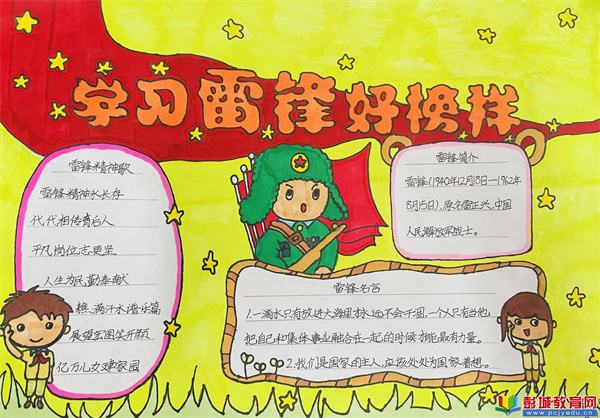 学习雷锋好榜样
雷锋精神歌
雷锋精神永长存
代代相传育后人
平凡岗位志更坚
人生为民勤奉献
滴汗水谱诗篇
展望宏图笑开颜
亿万儿女建家园
雷锋简介
雷锋(1940年12月18日—1962年
8月15日),原名雷正兴,中国
人民解放军战士。
雷锋名言
1.一滴水只有放进大海里才永远不会干涸,一个人只有当他,
把自己和集体事业融合在一起的时候才能最有力量。
2.我们是国家的主人,应该处处为国家着想。
彭城教育网
www.pcjyedu.cn